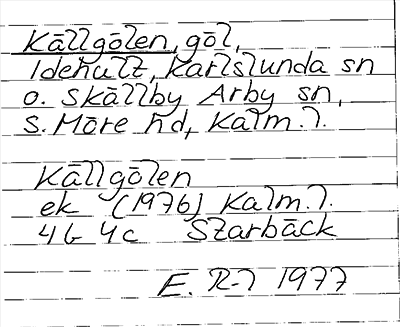 Källgölen, göl,
Idehult, Karlslunda sn
o. Skällby Arby sn,
S. Möre hd, Kalm. l.
Källgölen
ek (1976) Kalm. l.
4G 4c Starbäck
E. R-7 1977